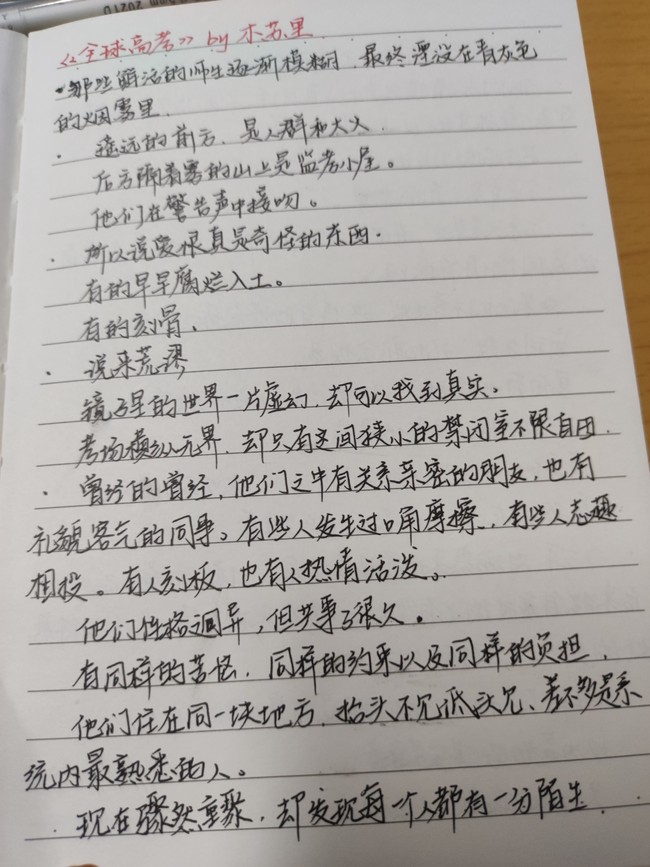 《全球高考》by 木苏里
· 那些鲜活的师生逐渐模糊，最终湮没在青灰色
的烟雾里．
· 遥远的前方．是人群和大火．
后方隔着雾的山上是监考小屋。
他们在警告声中接吻。
· 所以说爱恨真是奇怪的东西．
有的早早腐烂入土。
有的刻骨．
· 说来荒谬
镜子里的世界一片虚幻，却可以找到真实．
考场横纵无界，却只有这间狭小的禁闭室不限自由．
· 曾经的曾经，他们之中有关系亲密的朋友，也有
礼貌客气的同事。有些人发生过口角摩擦，有些人志趣
相投。有人刻板，也有人热情活泼。
他们性格迥异，但共事了很久。
有同样的苦恼．同样的约束以及同样的负担．
他们住在同一块地方，抬头不见低头见、差不多是系
统内最熟悉的人。
· 现在骤然重聚，却发现每一个人都有一分陌生．